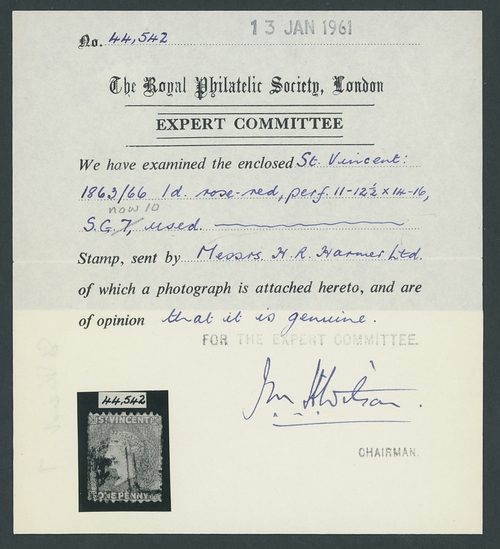 No. 44,542
13 JAN 1961
The Royal Philatelic Society, London
EXPERT COMMITTEE
We have examined the enclosed St. Vincent:
1863/66 1d. rose-red, perf. 11-12½ x 14-16,
now 10
S.G.7, used.
Stamp, sent by Messrs. H. R. Harmer Ltd.
of which a photograph is attached hereto, and are
of opinion that it is genuine.
FOR THE EXPERT COMMITTEE.
CHAIRMAN.
44,542
ST VINCENT
ONE PENNY